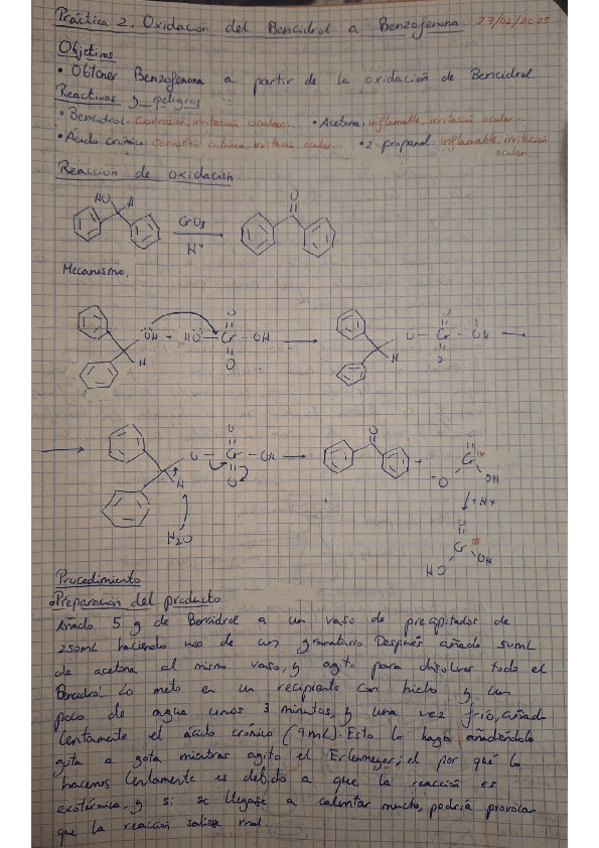 Práctica 2. Oxidación del Bencidrol a Benzofenona 27/02/2025
Objetivos
• Obtener Benzofenona a partir de la oxidación de Bencidrol
Reactivos y peligros
• Bencidrol: Corrosión, irritación ocular... • Acetona: inflamable, irritación ocular...
• Ácido crómico: corrosión cutánea, irritación ocular... • 2-propanol: inflamable, irritación
ocular...
Reacción de oxidación
HO H O
CrO3
H+
Mecanismo.
O O
ÖH + HÖ — Cr — OH O — Cr — OH
H O H O
O O
O — Cr — OH + Cr OH
H O O
H2O ↓ + H+
O
Cr
HO OH
Procedimiento
• Preparación del producto
Añado 5 g de Bencidrol a un vaso de precipitados de
250mL haciendo uso de un granatario. Después añado 50mL
de acetona al mismo vaso, y agito para disolver todo el
Bencidrol. Lo meto en un recipiente con hielo y un
poco de agua unos 3 minutos, y una vez frío, añado
lentamente el ácido crómico (9mL). Esto lo hago añadiéndolo
gota a gota mientras agito el Erlenmeyer; el por qué lo
hacemos lentamente es debido a que la reacción es
exotérmica, y si se llegase a calentar mucho, podría provocar
que la reacción saliese mal.